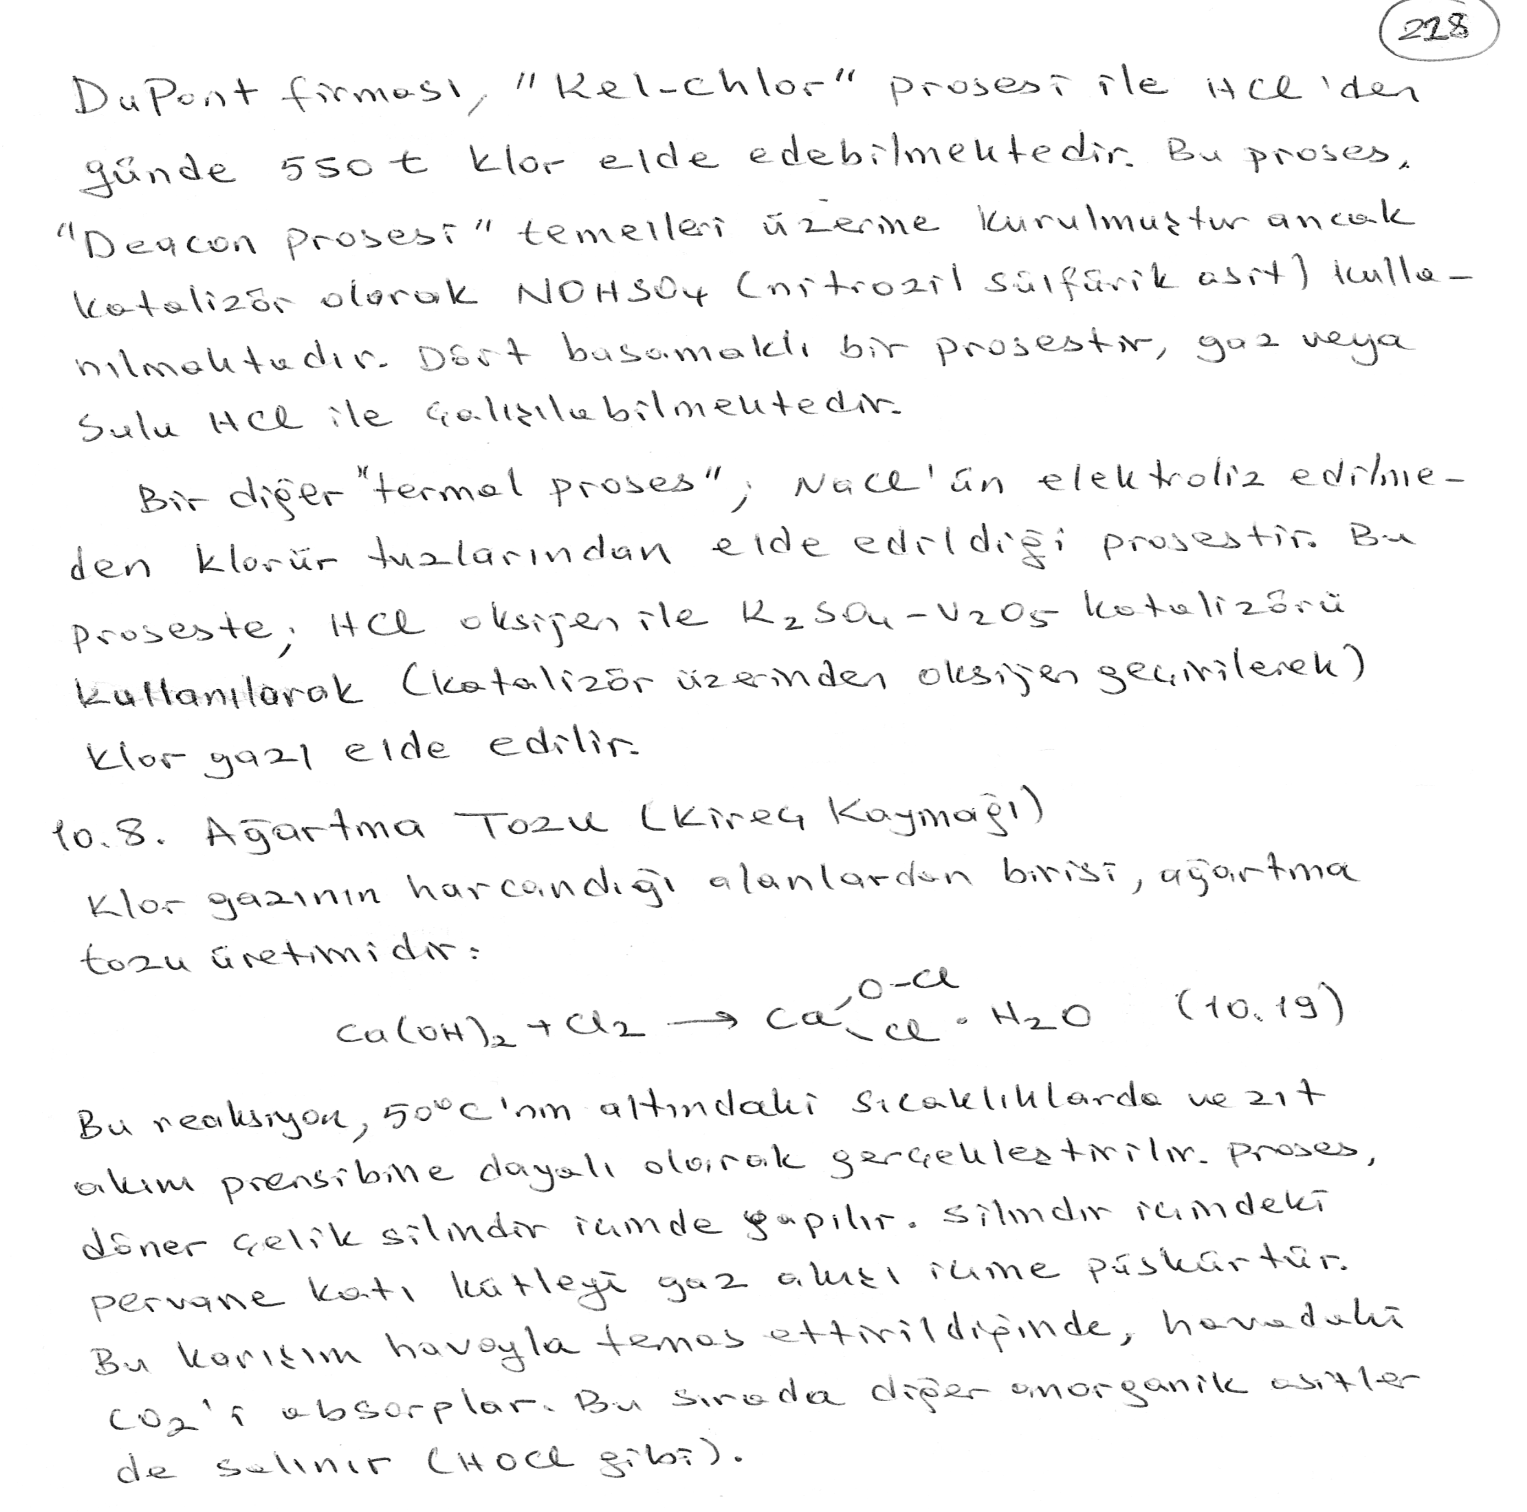 228
DuPont firması, "Kel-chlor" prosesi ile HCl'den
günde 550 t klor elde edebilmektedir. Bu proses,
"Deacon prosesi" temelleri üzerine kurulmuştur ancak
katalizör olarak NOHSO4 (nitrozil sülfürik asit) kulla-
nılmaktadır. Dört basamaklı bir prosestir, gaz veya
sulu HCl ile çalışılabilmektedir.
Bir diğer "termal proses"; NaCl'ün elektroliz edilme-
den klorür tuzlarından elde edildiği prosestir. Bu
proseste; HCl oksijen ile K2SO4-V2O5 katalizörü
kullanılarak (katalizör üzerinden oksijen geçirilerek)
klor gazı elde edilir.
10.8. Ağartma Tozu (Kireç Kaymağı)
Klor gazının harcandığı alanlardan birisi, ağartma
tozu üretimidir:
O-Cl
Ca(OH)2 + Cl2 → Ca Cl . H2O (10.19)
Bu reaksiyon, 50°C'nin altındaki sıcaklıklarda ve zıt
akım prensibine dayalı olarak gerçekleştirilir. Proses,
döner çelik silindir içinde yapılır. Silindir içindeki
pervane katı kütleyi gaz akışı içine püskürtür.
Bu karışım havayla temas ettirildiğinde, havadaki
CO2'i absorplar. Bu sırada diğer anorganik asitler
de salınır (HOCl gibi).